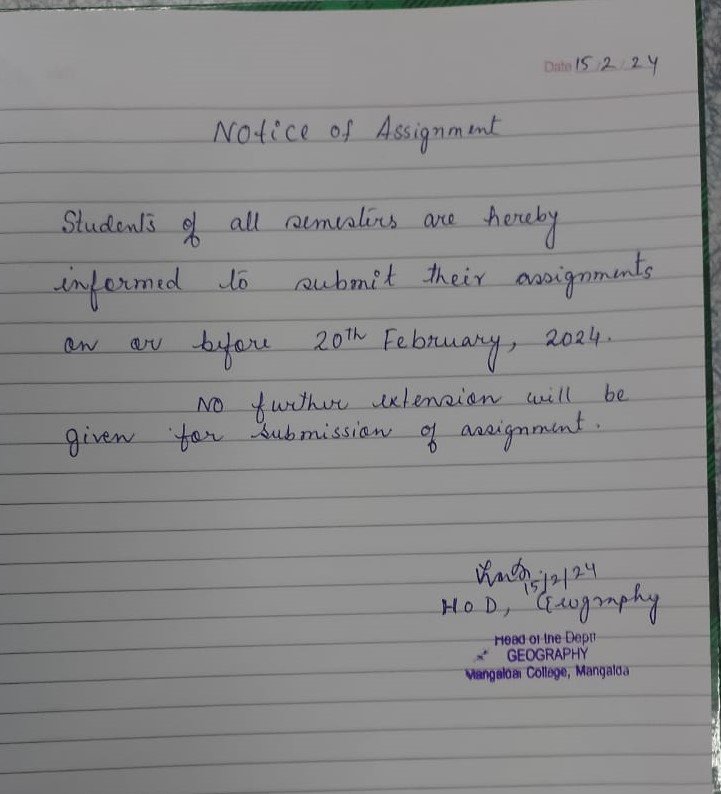 Date 15/2/24
Notice of Assignment
Students of all semesters are hereby
informed to submit their assignments
on or before 20th February, 2024.
No further extension will be
given for submission of assignment.
15/2/24
HoD, Geography
Head of the Deptt
GEOGRAPHY
Mangaldai College, Mangalda